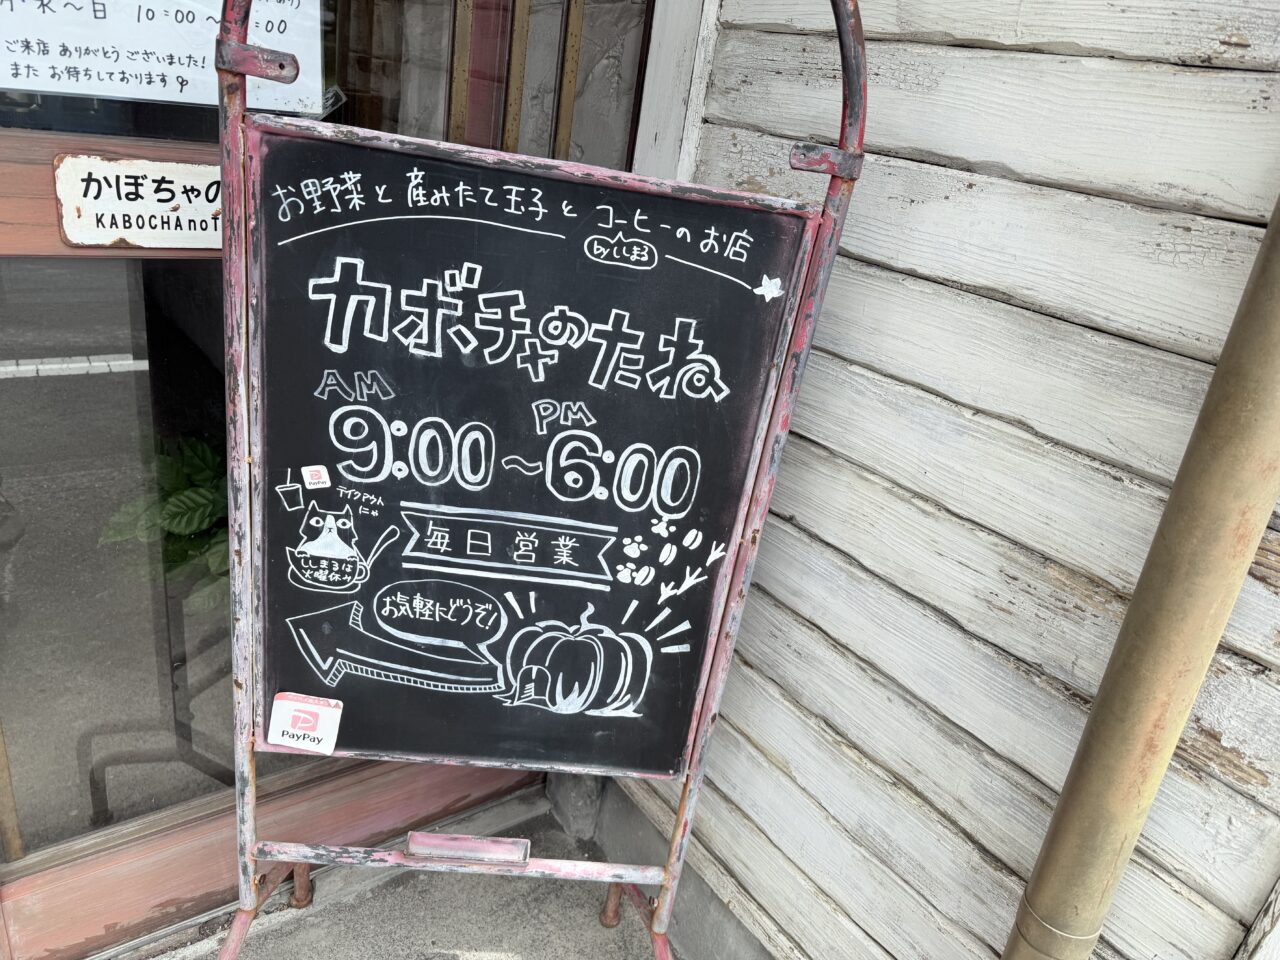 水～日 10:00～
:00
ご来店 ありがとう ございました!
また お待ちしております
かぼちゃの
KABOCHAnoT
お野菜と 産みたて玉子と コーヒーのお店
by ししまる
カボチャのたね
AM PM
9:00～6:00
PayPay
テイクアウト
にゃ
毎日営業
ししまるは
火曜休み
お気軽にどうぞ!
PayPay